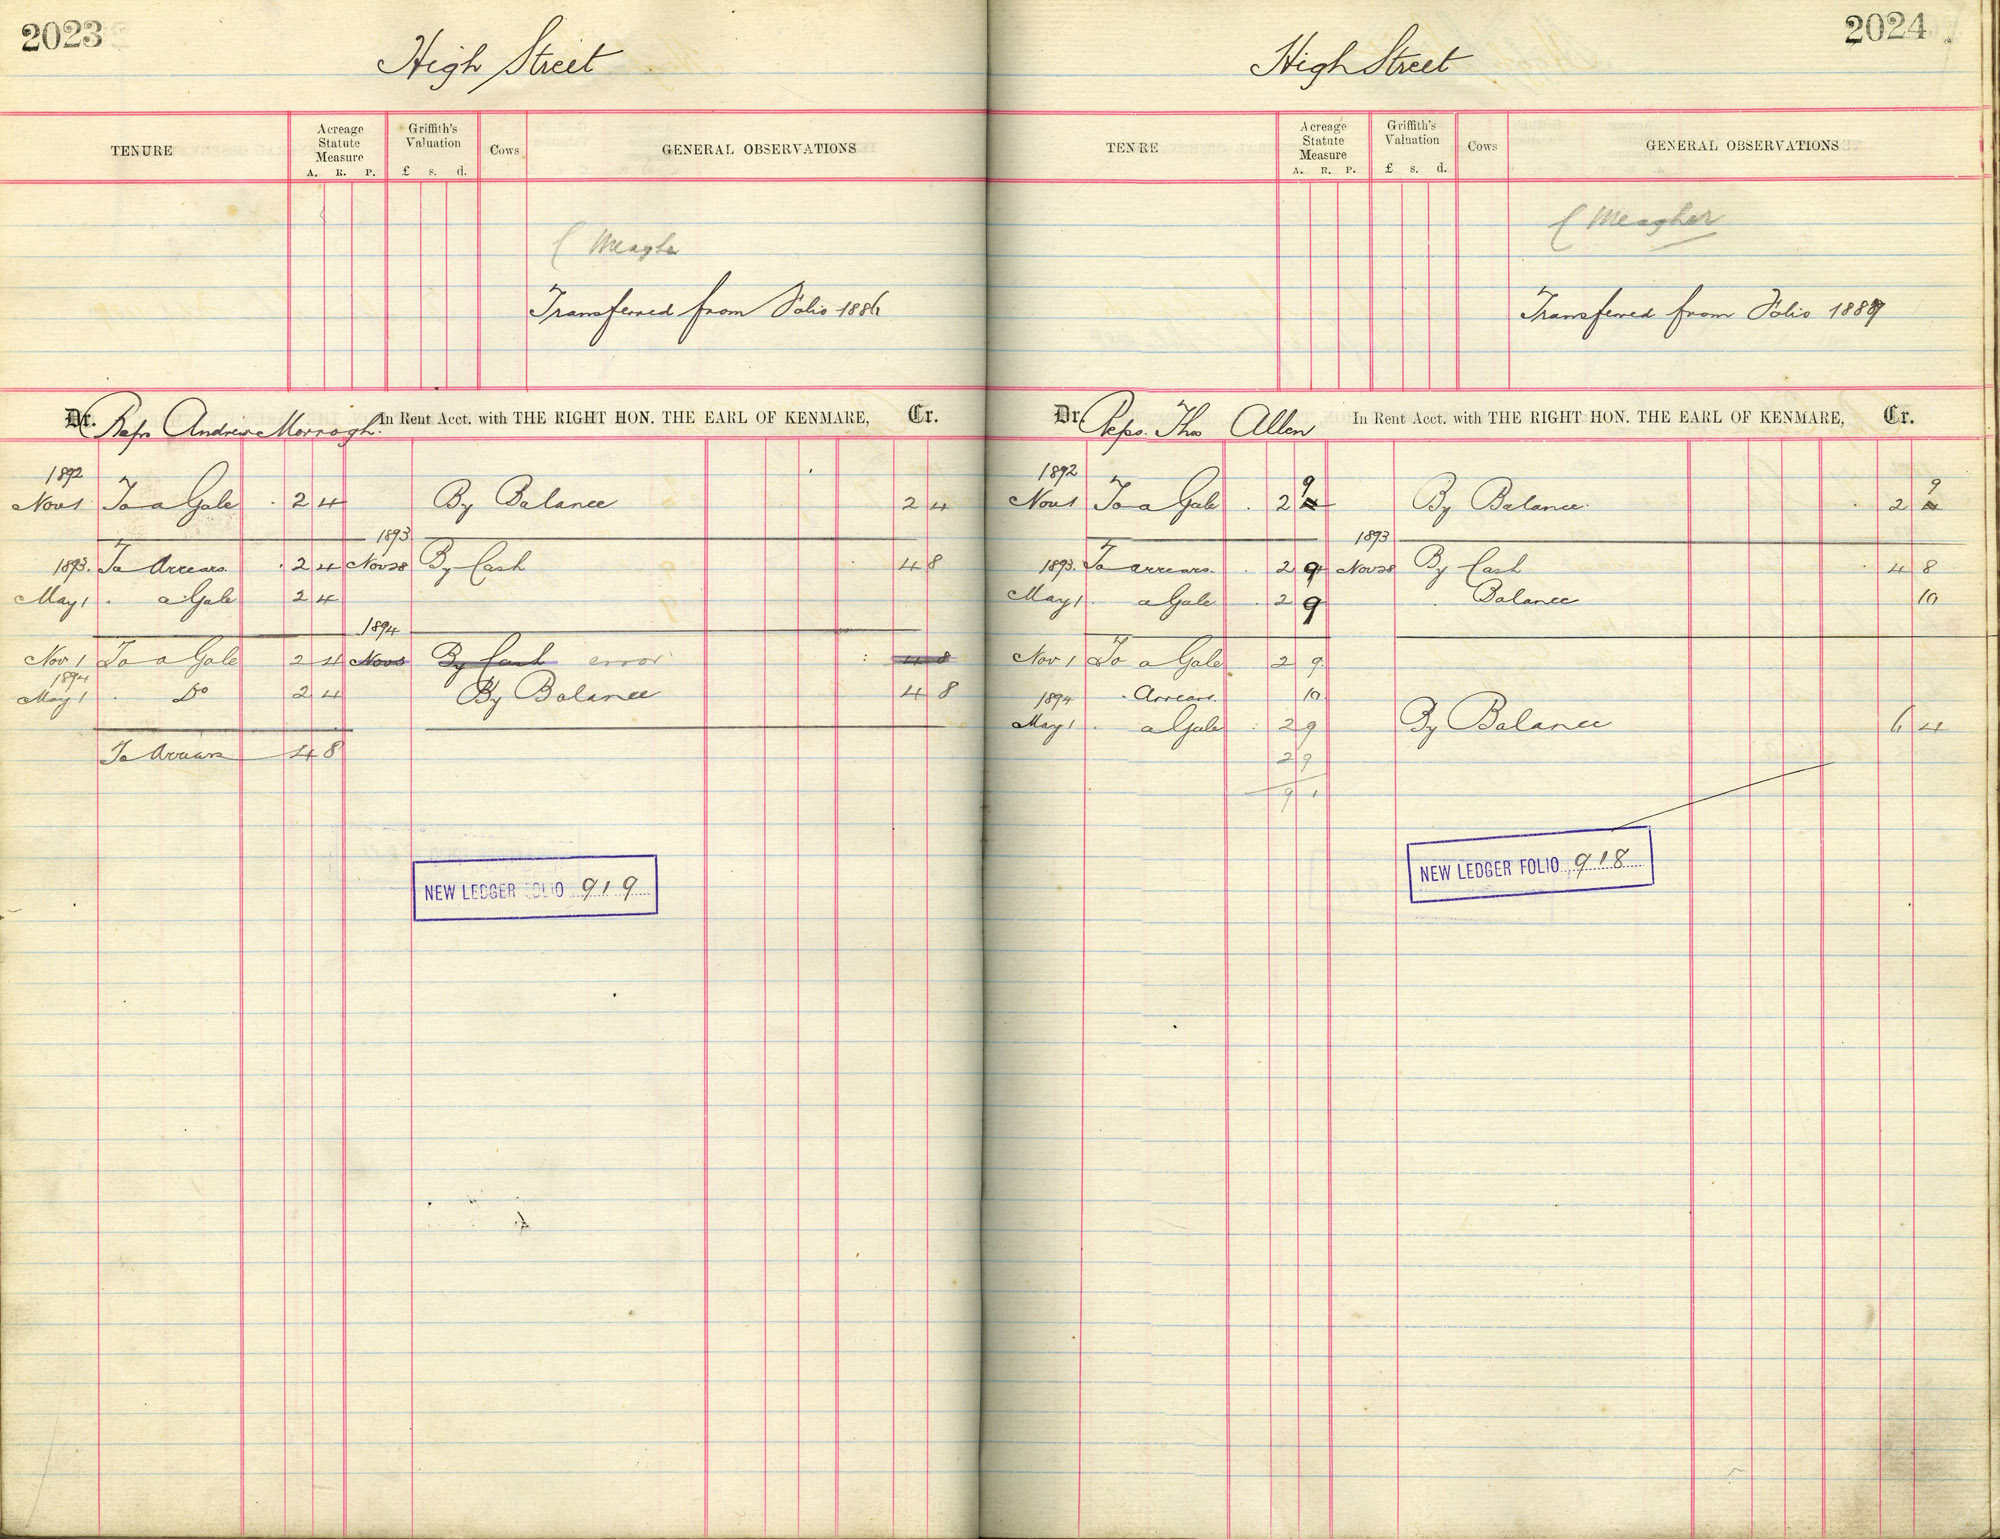 2023
High Street
TENURE
Acreage Statute Measure
A. R. P.
Griffith's Valuation
£ s. d.
Cows
GENERAL OBSERVATIONS
( Meaghe
Transferred from Folio 1886
Dr. Reps Andrew Morrogh In Rent Acct. with THE RIGHT HON. THE EARL OF KENMARE, Cr.
1892
Nov 1 To a Gale . 2 4 By Balance 2 4
1893
1893. To Arrears . 2 4 Nov 28 By Cash 4 8
May 1 . a Gale 2 4
1894
Nov 1 To a Gale 2 4 Nov 8 By Cash error 4 8
1894
May 1 . Do 2 4 By Balance 4 8
To Arrears 4 8
NEW LEDGER FOLIO 919
2024
High Street
TEN RE
Acreage Statute Measure
A. R. P.
Griffith's Valuation
£ s. d.
Cows
GENERAL OBSERVATIONS
( Meagher
Transferred from Folio 1889
Dr. Reps. Thos Allen In Rent Acct. with THE RIGHT HON. THE EARL OF KENMARE, Cr.
1892
Nov 1 To a Gale . 2 9 By Balance 2 9
1893
1893. To arrears . 2 9 Nov 28 By Cash 4 8
May 1 . a Gale . 2 9 Balance 10
Nov 1 To a Gale 2 9
1894 . Arrears. 10
May 1 . a Gale 2 9 By Balance 6 4
2 9
9 1
NEW LEDGER FOLIO 918